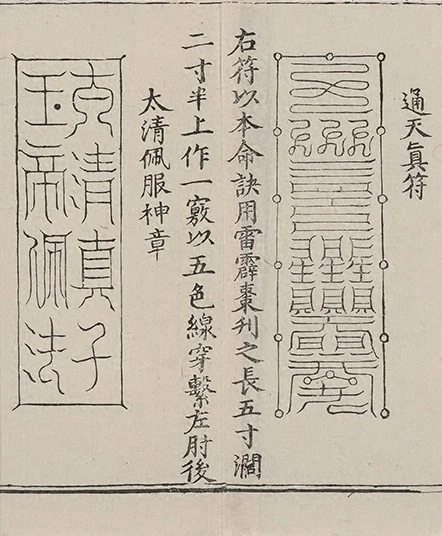 通天眞符
右符以本命訣用雷霹棗刋之長五寸濶
二寸半上作一竅以五色線穿繫左肘後
太清佩服神章
清真子
玉帝佩法